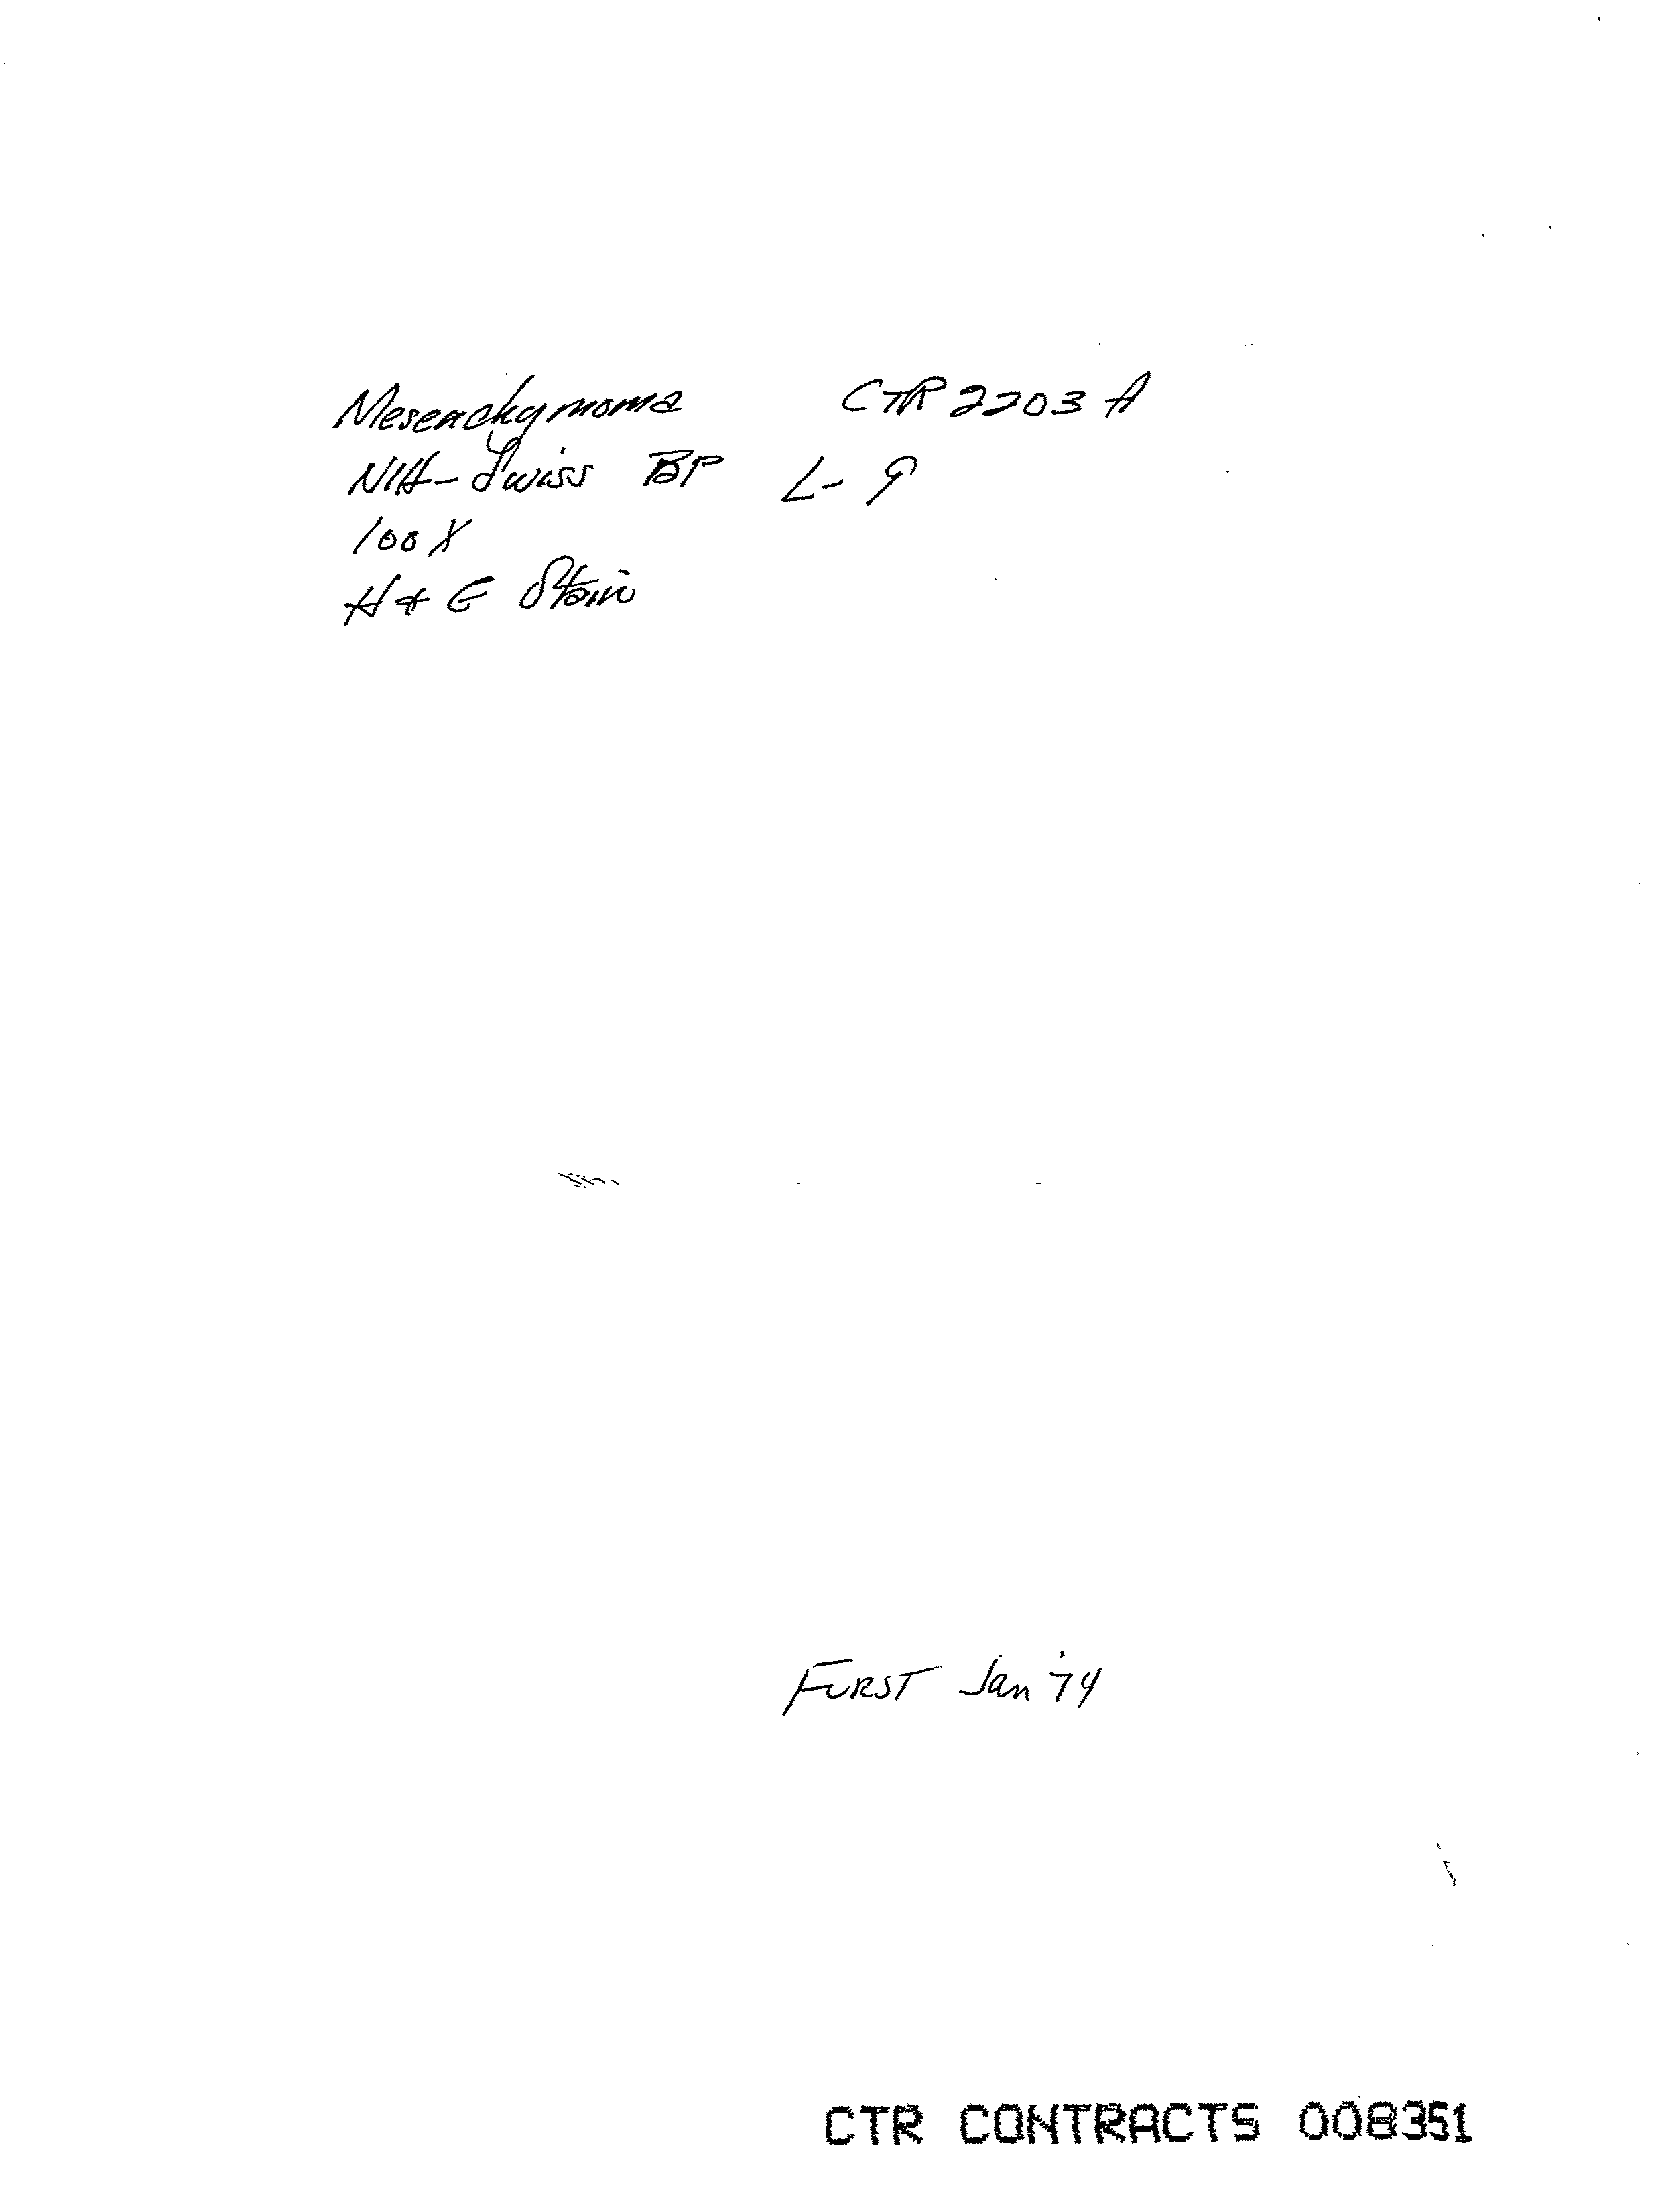 Mesenchymoma CTR 2203 A
NIH-Swiss BP L-9
100X
H & E Stain
FURST Jan '74
CTR CONTRACTS 008351